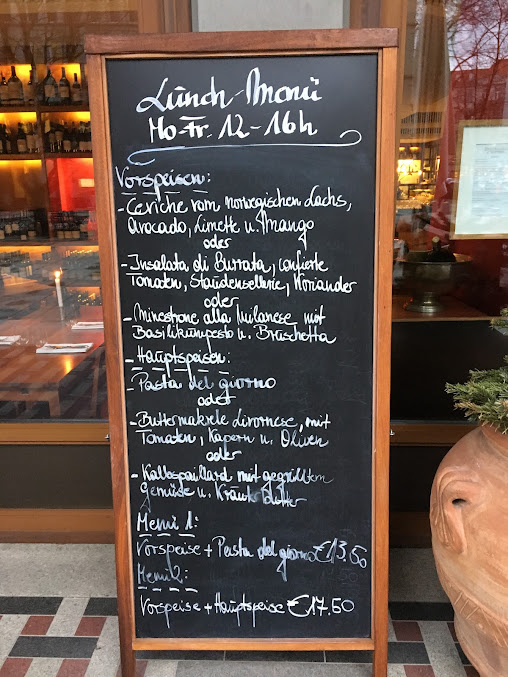 Lunch-Menü
Mo-Fr. 12-16h
Vorspeisen:
- Ceviche vom norwegischen Lachs,
Avocado, Limette u. Mango
oder
- Insalata di Burrata, confierte
Tomaten, Staudensellerie, Koriander
oder
- Minestrone alla Milanese mit
Basilikumpesto u. Bruschetta
- Hauptspeisen:
- Pasta del giorno
oder
- Buttermakrele Livornese, mit
Tomaten, Kapern u. Oliven
oder
- Kalbspaillard mit gegrilltem
Gemüse u. Kräuterbutter
Menü 1:
Vorspeise + Pasta del giorno €13.50
Menü 2:
Vorspeise + Hauptspeise €17.50